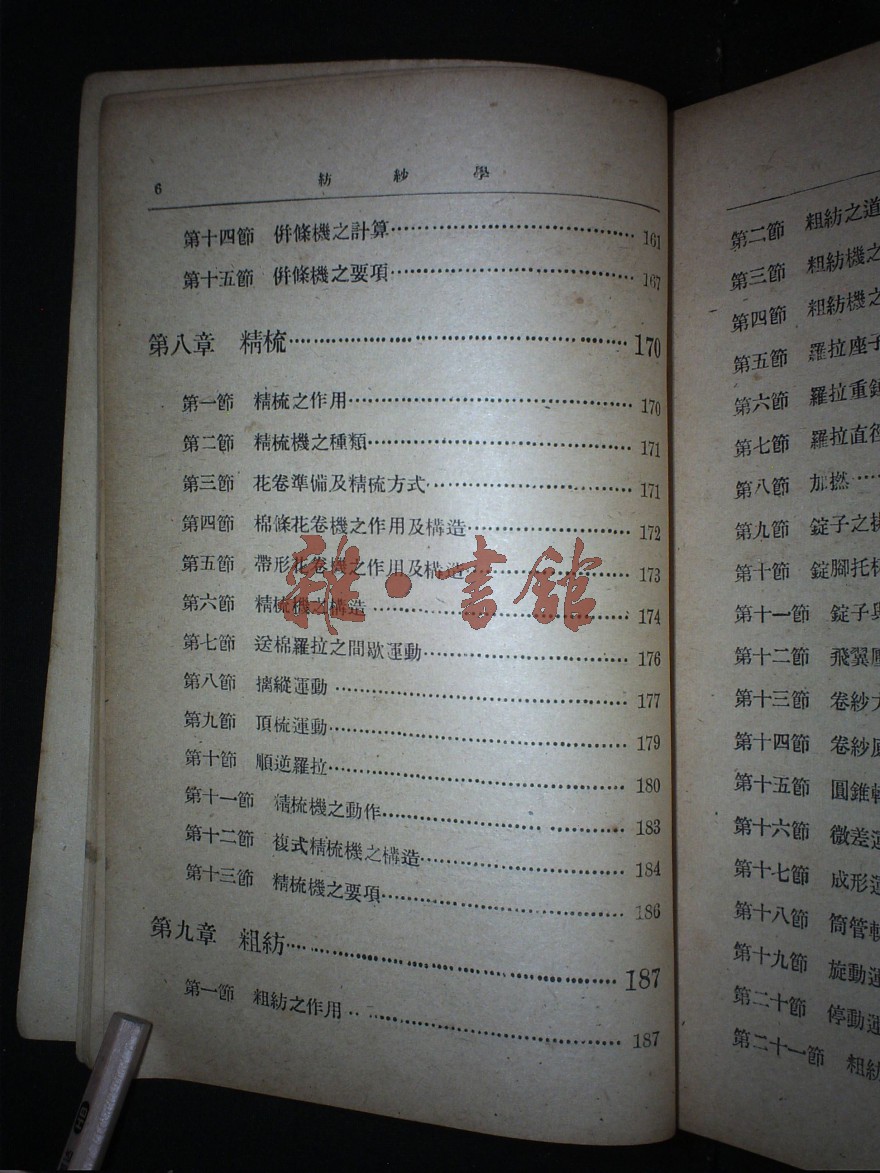 6 紡紗學
第十四節 併條機之計算 161
第十五節 併條機之要項 167
第八章 精梳 170
第一節 精梳之作用 170
第二節 精梳機之種類 171
第三節 花卷準備及精梳方式 171
第四節 棉條花卷機之作用及構造 172
第五節 帶形花卷機之作用及構造 173
第六節 精梳機之構造 174
第七節 送棉羅拉之間歇運動 176
第八節 摛縱運動 177
第九節 頂梳運動 179
第十節 順逆羅拉 180
第十一節 精梳機之動作 183
第十二節 複式精梳機之構造 184
第十三節 精梳機之要項 186
第九章 粗紡 187
第一節 粗紡之作用 187
雜·書館
第二節 粗紡之道
第三節 粗紡機之
第四節 粗紡機之
第五節 羅拉座子
第六節 羅拉重錘
第七節 羅拉直徑
第八節 加撚
第九節 錠子之
第十節 錠腳托
第十一節 錠子與
第十二節 飛翼
第十三節 卷紗
第十四節 卷紗
第十五節 圓錐
第十六節 微差運
第十七節 成形運
第十八節 筒管
第十九節 旋動運
第二十節 停動運
第二十一節 粗紡
HB